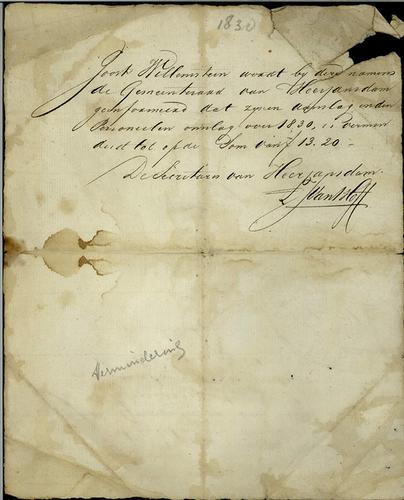 1830
Joost Willemstein wordt by deze namens
de Gemeenteraad van Heerjansdam
geinformeerd dat zynen aanslag in den
Personeelen omslag over 1830, is vermin
derd tot op de Som van ƒ 13.20 -
De Secretaris van Heerjansdam.
Vermindering